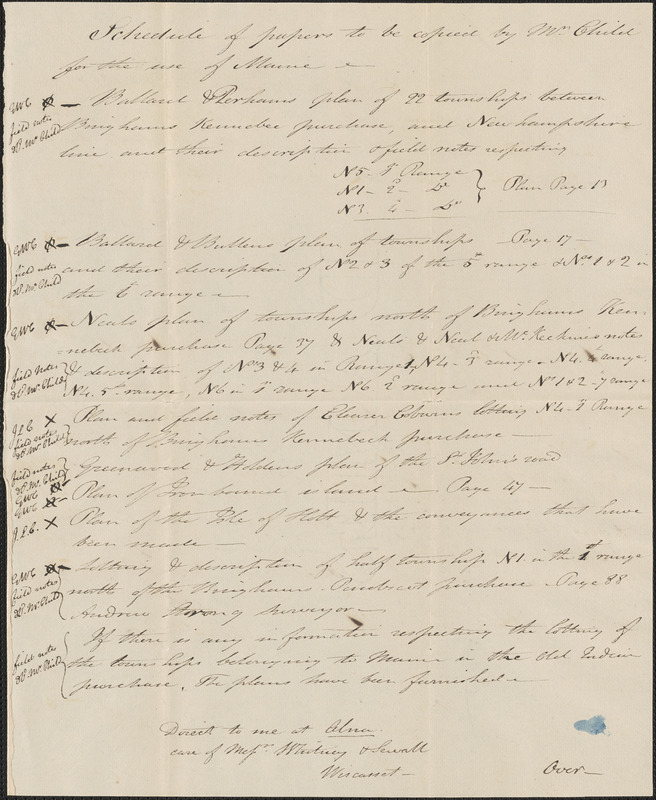 Schedule of papers to be copied by Mr. Child
for the use of Maine —
GWC X — Ballard & Perhams plan of 22 townships between
field notes
D.P. McChild
Binghams Kennebec purchase, and New hampshire
line and their description & field notes respecting
No 5. 1st Range
No 1 - 2d - Do
No 3. 4 - Do
Plan Page 13
GWC X — Ballard & Bullens plan of townships — Page 17 —
field notes
and their description of No 2 & 3 of the 5th range & Nos 1 & 2 in
the 6 range —
GWC X — Neals plan of townships north of Binghams Ken-
=nebeck purchase Page 37 & Neals & Neal & McKechnies notes
field notes
& description of Nos 3 & 4 in Range 1, No 4 - 3d range. No 4. 4 range.
No 4. 5th range, No 6 in 1st range No 6 2d range and No 1 & 2 - 7 range
J.P.C. X Plan and field notes of Eleazer Coburns lotting No 4 - 1st Range
field notes
north of Binghams Kennebeck purchase —
field notes
Greenwood & Holdens plan of the St. John's road
GWC X — Plan of Iron bound island — Page 47 —
GWC X —
J.P.C. X Plan of the Isle of Holt & the conveyances that have
been made —
GWC X — Lotting & description of half township No 1 in the 1st range
field notes
north of the Binghams Penobscot purchase — Page 88
Andrew Strong surveyor —
If there is any information respecting the lotting of
field notes
the townships belonging to Maine in the Old Indian
purchase. The plans have been furnished —
Direct to me at Alna
care of Messrs. Whitney & Sewall
Wiscasset —
Over —